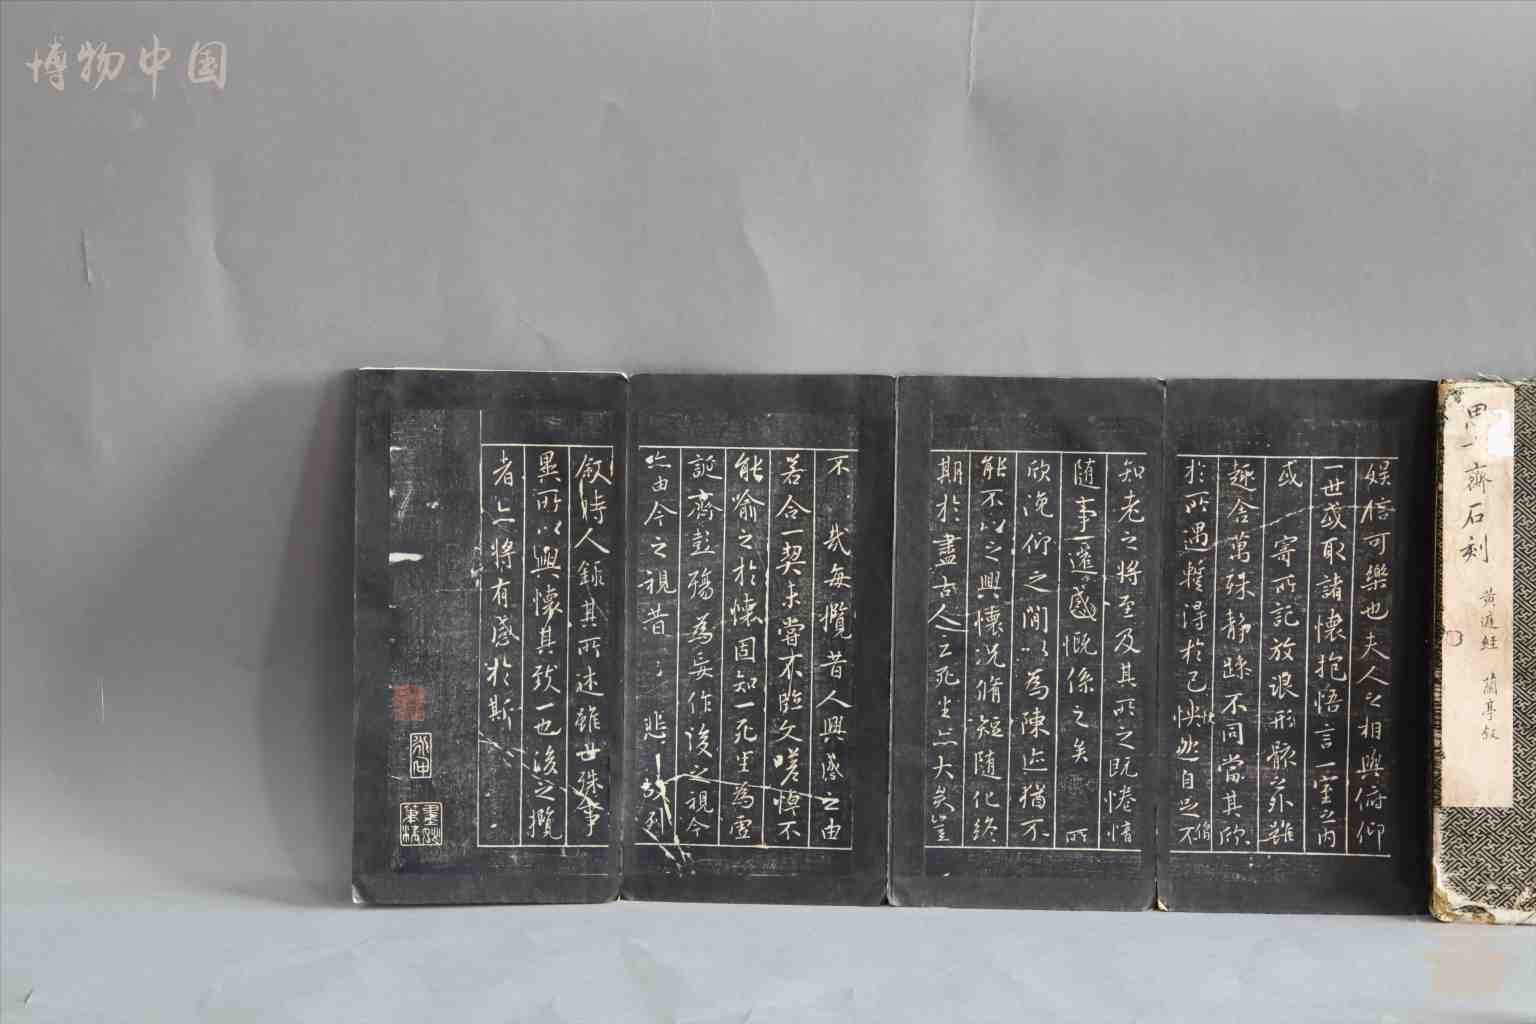 博物中国
思 齋石刻
黄庭經 蘭亭叙
娱信可樂也夫人之相與俯仰
一世或取諸懷抱悟言一室之内
或 寄所記放浪形骸之外雖
趣舍萬殊静躁不同當其欣
於所遇暫得於己怏然自足不
快
僧
知老之將至及其所之既惓情
随事遷感慨係之矣 所
欣俛仰之閒以為陳迹猶不
能不以之興懷況脩短随化終
期於盡古人云死生亦大矣豈
不 哉每攬昔人興感之由
若合一契未嘗不臨文嗟悼不
能喻之於懷固知一死生為虚
誕齊彭殤為妄作後之視今
亦由今之視昔 悲 故列
叙時人録其所述雖世殊事
異所以興懷其致一也後之攬
者亦將有感於斯
永仲
墨妙筆精